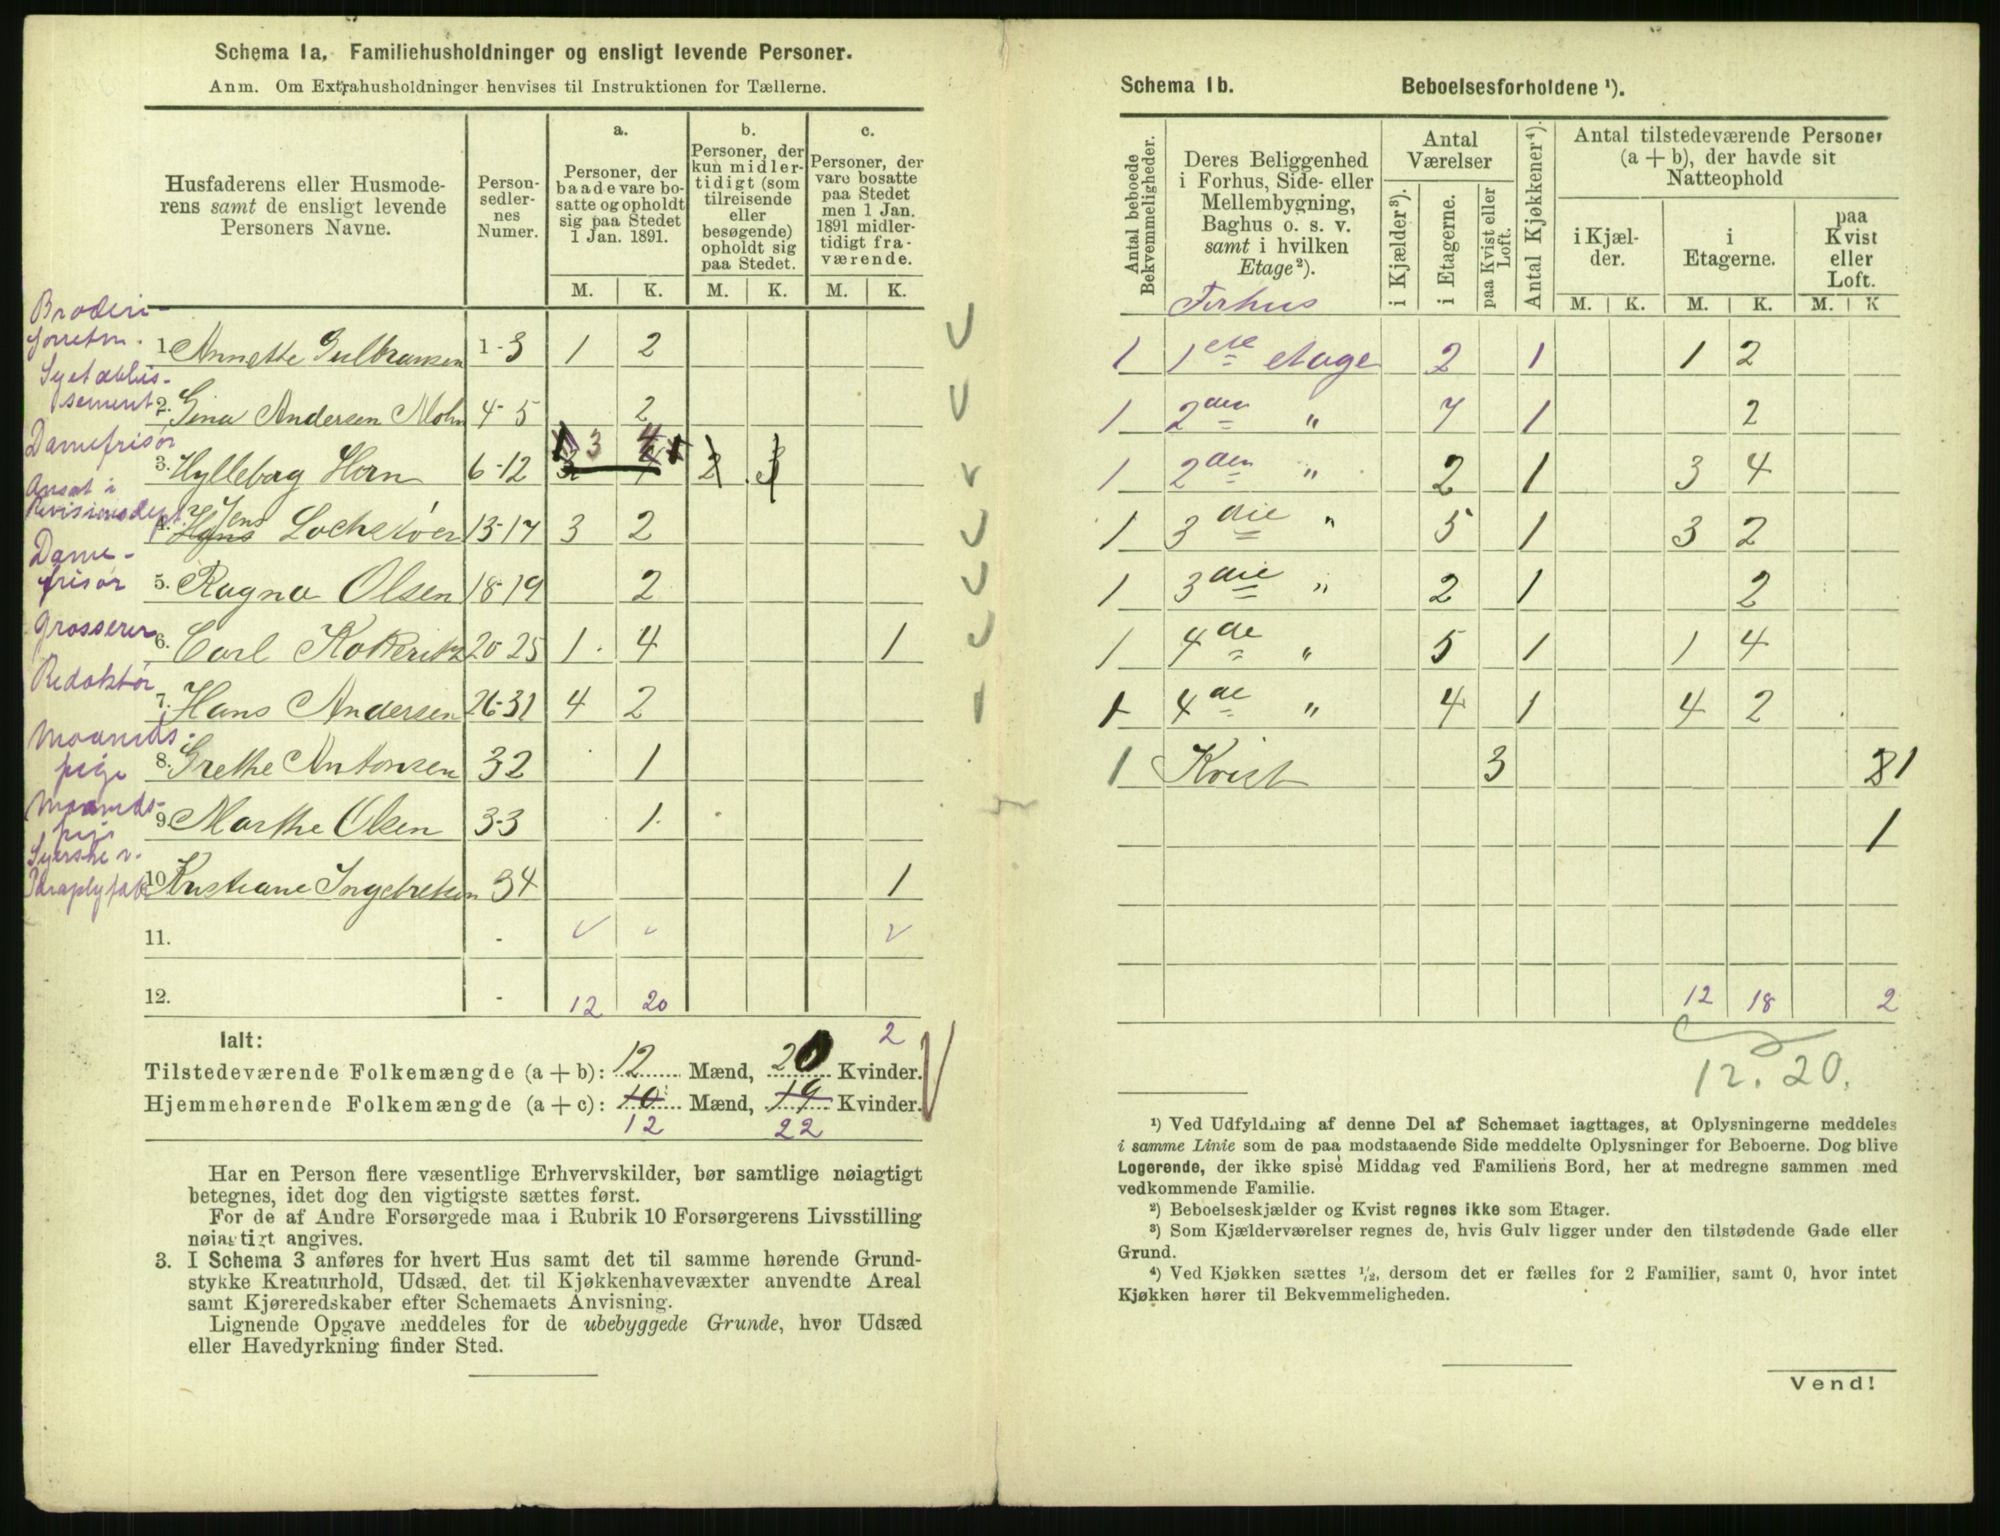 Schema 1a. Familiehusholdninger og ensligt levende Personer.
Anm. Om Extrahusholdninger henvises til Instruktionen for Tællerne.
Husfaderens eller Husmoderens samt de ensligt levende Personers Navne.
Personsedlernes Numer.
a. Personer, der baade vare bosatte og opholdt sig paa Stedet 1 Jan. 1891.
b. Personer, der kun midlertidigt (som tilreisende eller besøgende) opholdt sig paa Stedet.
c. Personer, der vare bosatte paa Stedet men 1 Jan. 1891 midlertidigt fraværende.
M. K. M. K. M. K.
Broderiforretn. 1. Annette Gulbransen 1-3 1 2
Syetablissement 2. Gina Andersen Mohn 4-5 2
Damefrisør 3. Hylleborg Horn 6-12 3 4
Ansat i Revisionsdept. 4. Jens Lochskoer 13-17 3 2
Damefrisør 5. Ragna Olsen 18-19 2
Grosserer 6. Carl Kotkeritz 20-25 1 4 1
Redaktør 7. Hans Andersen 26-31 4 2
Maanedspige 8. Grethe Antonsen 32 1
Maanedspige 9. Marthe Olsen 33 1
Syerske v. Paraplyfabr 10. Kristiane Ingebretsen 34 1
11. -
12. - 12 20
2
Ialt:
Tilstedeværende Folkemængde (a + b): 12 Mænd, 20 Kvinder.
Hjemmehørende Folkemængde (a + c): 10 Mænd, 19 Kvinder.
12 22
Har en Person flere væsentlige Erhvervskilder, bør samtlige nøiagtigt
betegnes, idet dog den vigtigste sættes først.
For de af Andre Forsørgede maa i Rubrik 10 Forsørgerens Livsstilling
nøiagtigt angives.
3. I Schema 3 anføres for hvert Hus samt det til samme hørende Grund-
stykke Kreaturhold, Udsæd, det til Kjøkkenhavevæxter anvendte Areal
samt Kjøreredskaber efter Schemaets Anvisning.
Lignende Opgave meddeles for de ubebyggede Grunde, hvor Udsæd
eller Havedyrkning finder Sted.
Schema 1b. Beboelsesforholdene ¹).
Antal beboede Bekvemmeligheder.
Deres Beliggenhed i Forhus, Side- eller Mellembygning, Baghus o. s. v. samt i hvilken Etage²).
Forhus
Antal Værelser
i Kjælder³).
i Etagerne.
paa Kvist eller Loft.
Antal Kjøkkener⁴).
Antal tilstedeværende Personer (a + b), der havde sit Natteophold
i Kjælder.
i Etagerne.
paa Kvist eller Loft.
M. K. M. K. M. K
1 1ste etage 2 1 1 2
1 2den " 7 1 2
1 2den " 2 1 3 4
1 3die " 5 1 3 2
1 3die " 2 1 2
1 4de " 5 1 1 4
1 4de " 4 1 4 2
1 Kvist 3 1
1
12 18 2
12. 20.
¹) Ved Udfyldning af denne Del af Schemaet iagttages, at Oplysningerne meddeles
i samme Linie som de paa modstaaende Side meddelte Oplysninger for Beboerne. Dog blive
Logerende, der ikke spise Middag ved Familiens Bord, her at medregne sammen med
vedkommende Familie.
²) Beboelseskjælder og Kvist regnes ikke som Etager.
³) Som Kjælderværelser regnes de, hvis Gulv ligger under den tilstødende Gade eller
Grund.
⁴) Ved Kjøkken sættes ½, dersom det er fælles for 2 Familier, samt 0, hvor intet
Kjøkken hører til Bekvemmeligheden.
Vend!